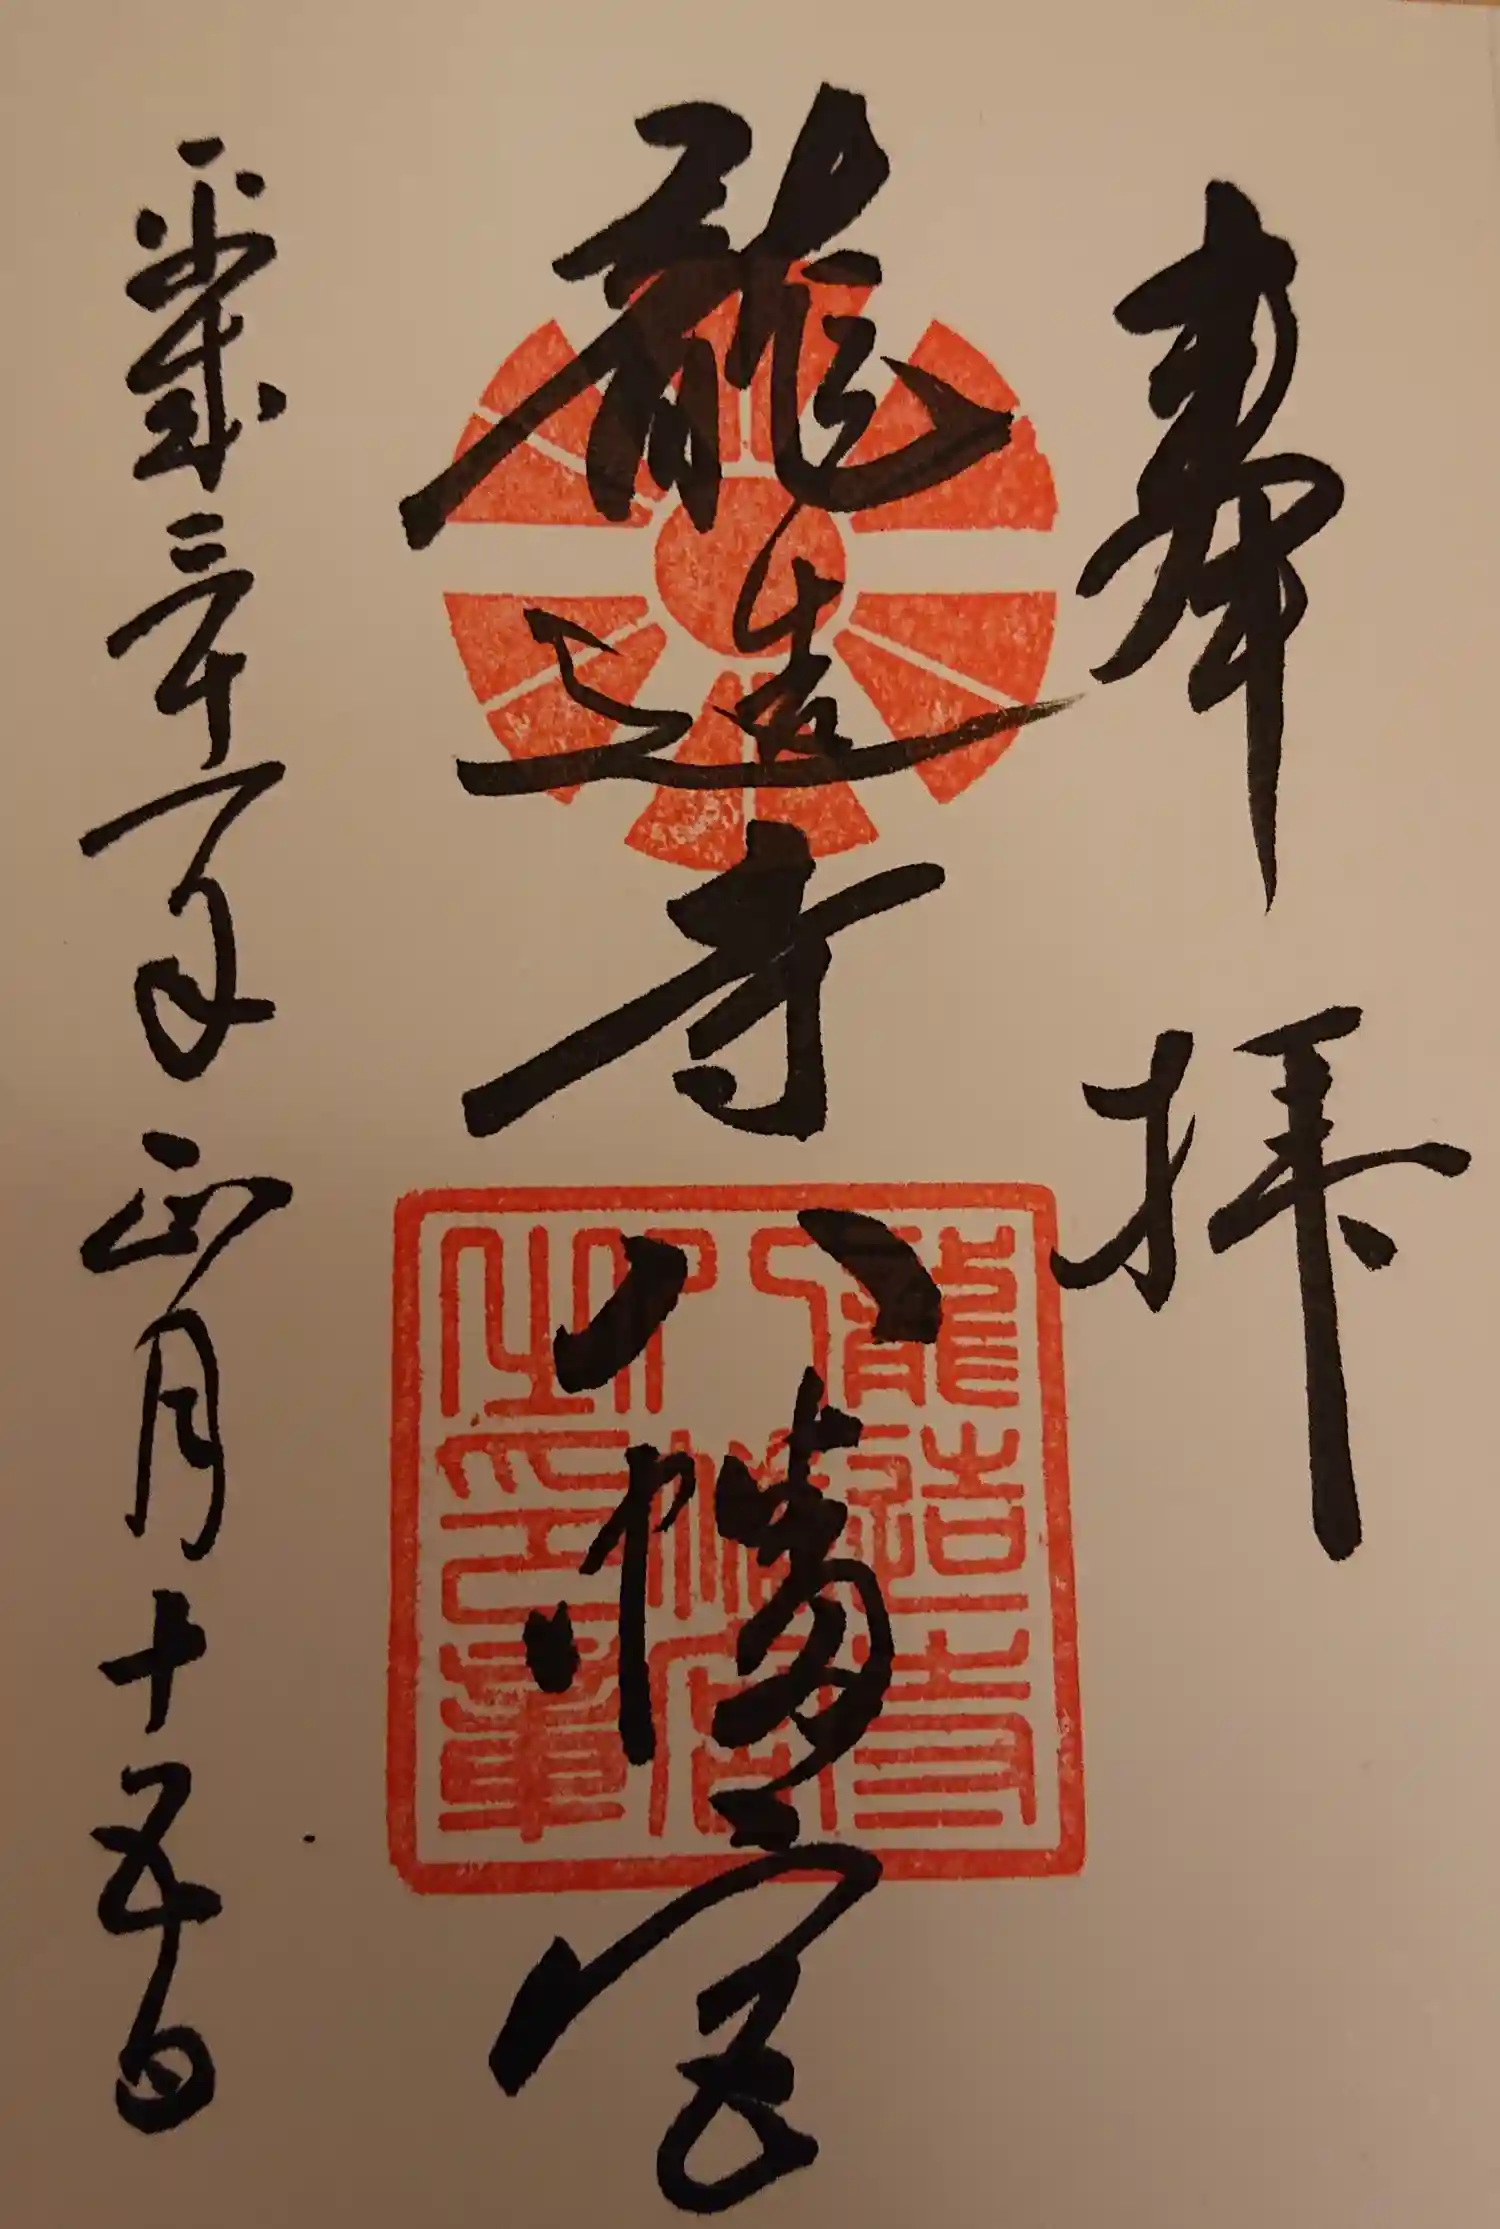 奉拝
龍造寺八幡宮
平成三十一年正月十五日
龍造寺
八幡宮
之印章